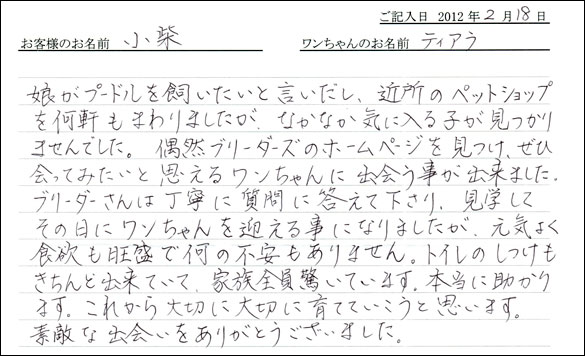 ご記入日 2012年2月18日
お客様のお名前 小柴 ワンちゃんのお名前 ティアラ
娘がプードルを飼いたいと言いだし、近所のペットショップ
を何軒もまわりましたが、なかなか気に入る子が見つかり
ませんでした。偶然ブリーダーズのホームページを見つけ、ぜひ
会ってみたいと思えるワンちゃんに出会う事が出来ました。
ブリーダーさんは丁寧に質問に答えて下さり、見学して
その日にワンちゃんを迎える事になりましたが、元気よく
食欲も旺盛で何の不安もありません。トイレのしつけも
きちんと出来ていて、家族全員驚いています。本当に助かり
ます。これから大切に大切に育てていこうと思います。
素敵な出会いをありがとうございました。